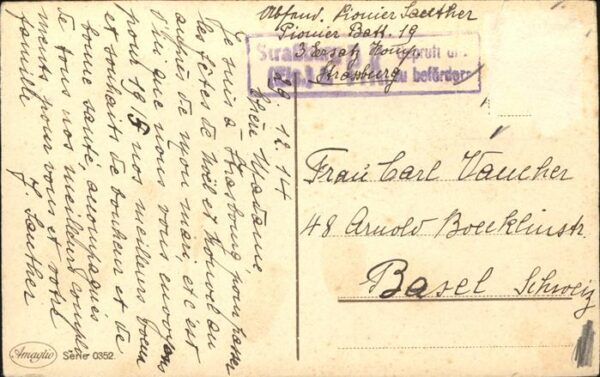 Absend. Pionier Sauther
Pionier Batt. 19
3 Ersatz Komp.
Strassburg
Straßburg
(Els.)
geprüft u.
zu befördern
29 12. 14
Chère Madame
Je suis à Strasbourg, pour passer
les fêtes de Noël et Nouvel an
auprès de mon mari, et c'est
d'ici que nous vous envoyons
pour 1915 nos meilleurs voeux
et souhaits de bonheur et de
bonne santé, accompagnés
de tous nos meilleurs compli-
ments pour vous et votre
famille
J. Sauther
Frau Carl Vaucher
48 Arnold Boecklinstr.
Basel Schweiz
Amaglio
Serie 0352.